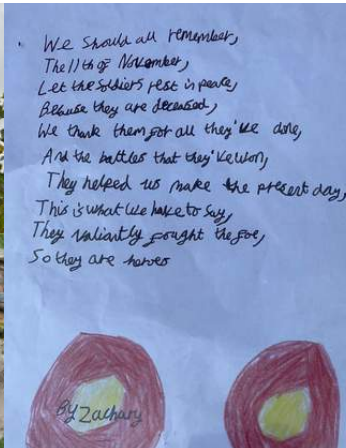 We should all remember,
The 11th of November,
Let the soldiers rest in peace,
Because they are deceased,
We thank them for all they've done,
And the battles that they've won,
They helped us make the present day,
This is what we have to say,
They valiantly fought the foe,
So they are heroes
By Zachary